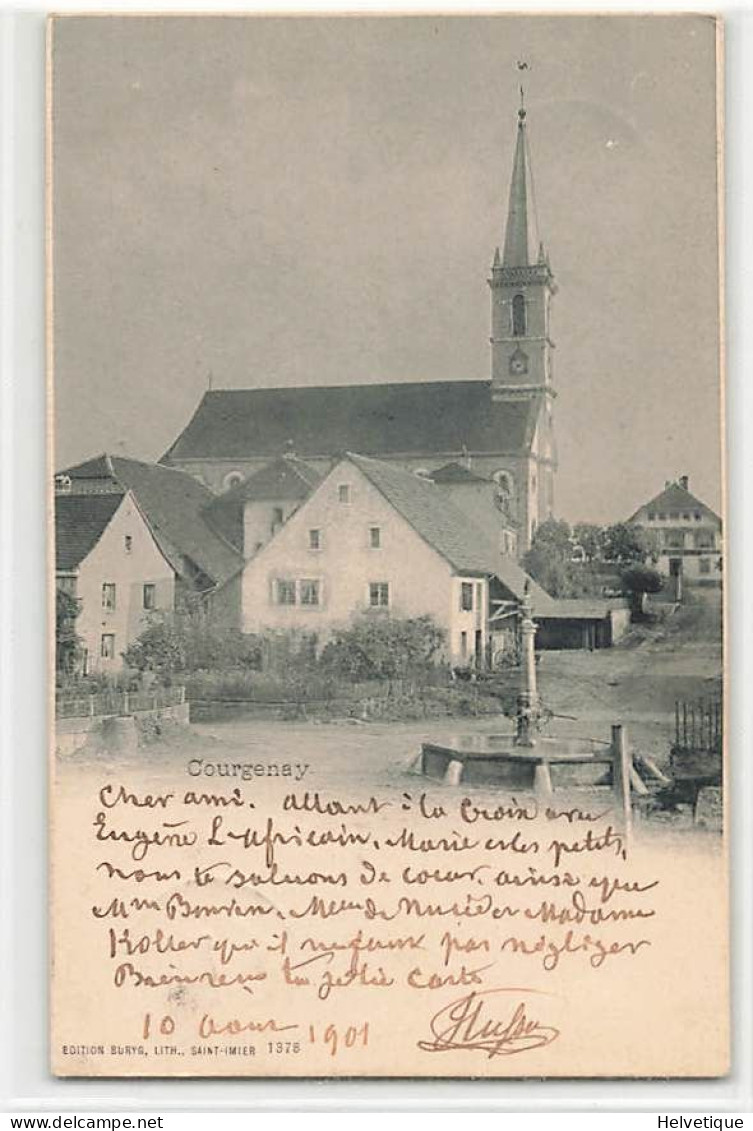 Courgenay
Cher ami. allant à la Croix avec
Eugène L'africain, Marie et les petits,
nous te saluons de coeur, ainsi que
Mme de et Madame
Koller qu'il ne faux pas négliger
ta jolie carte
10 aout 1901
EDITION BURYG, LITH., SAINT-IMIER 1378
Helvetique
www.delcampe.net